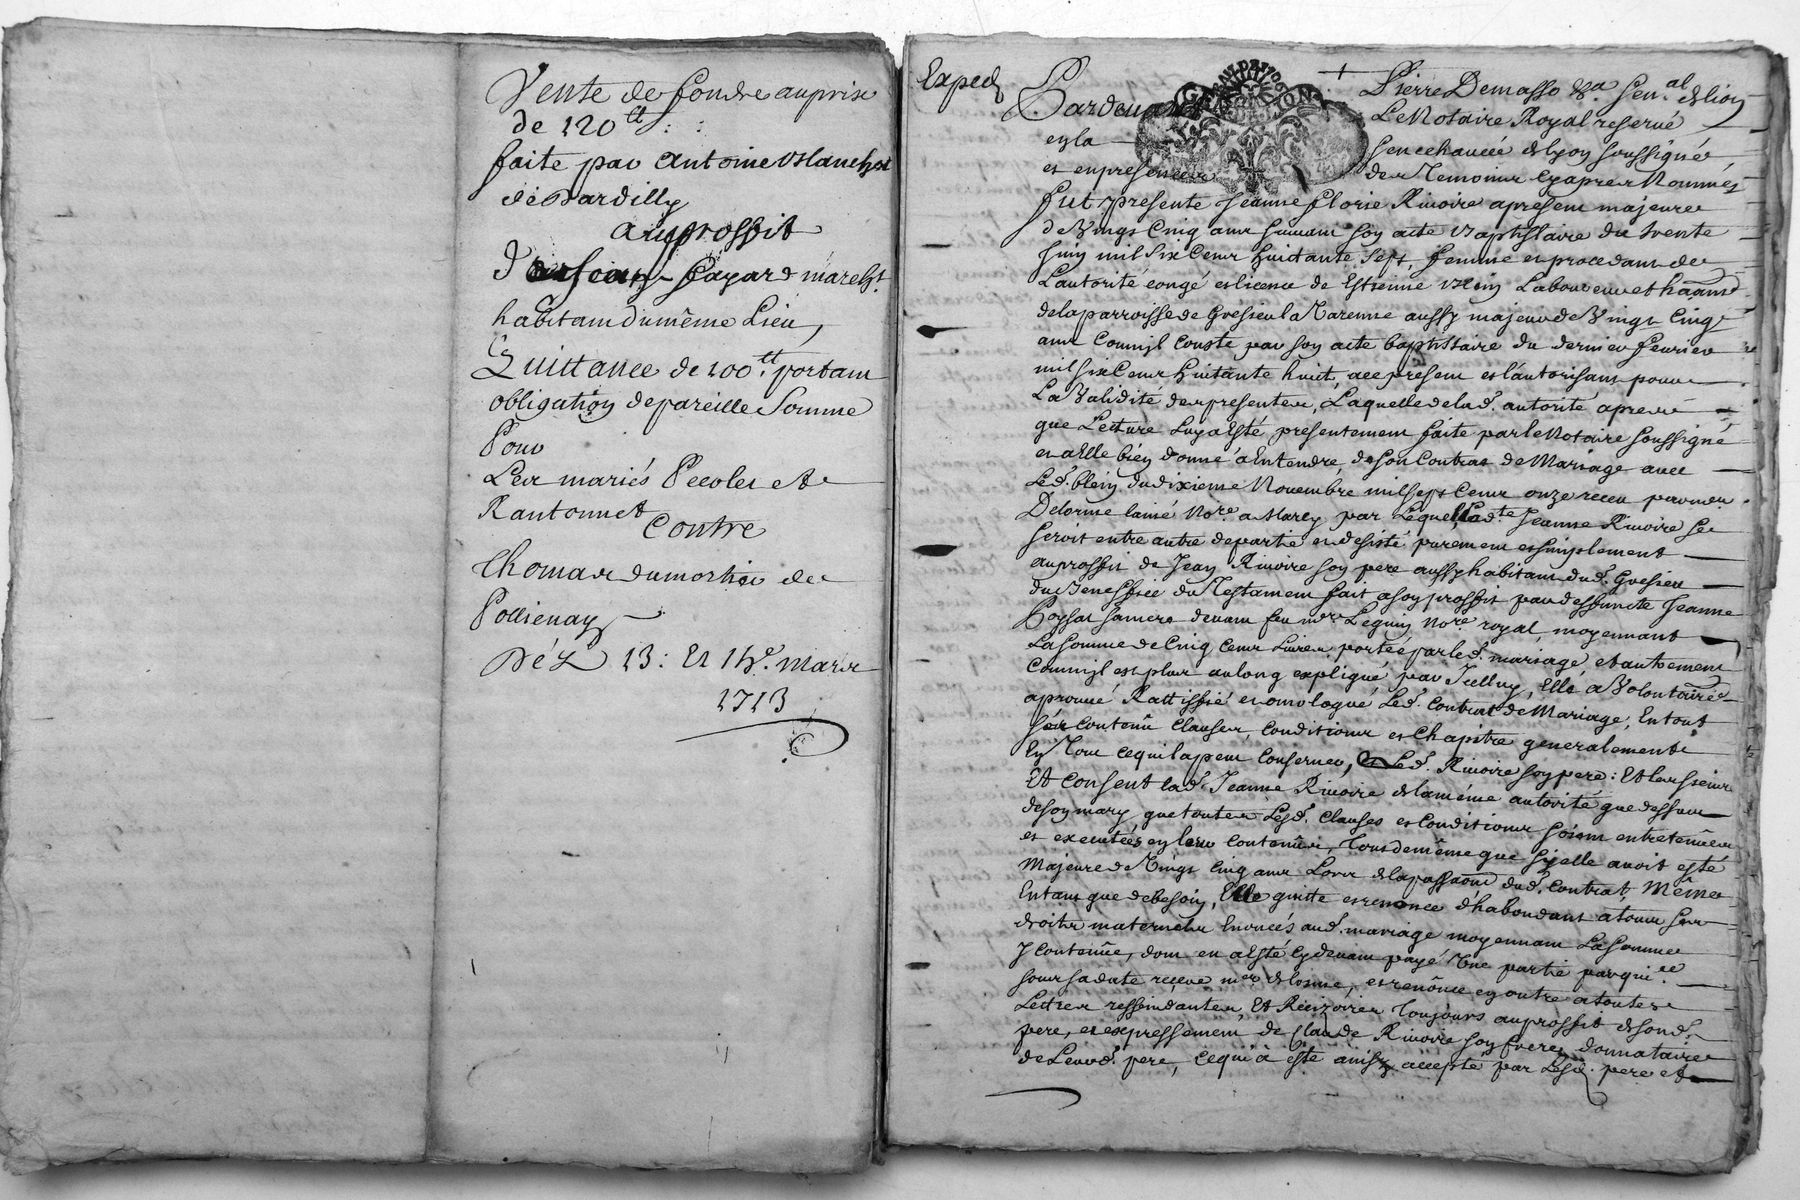 Vente de fondz au prix
de 120 tt : :
faite par Antoine Blanchet
de Dardilly
au proffit
de Jean Fayard march.t
habitant du même Lieu,
Quittance de 100.tt portant
obligation de pareille Somme
Pour
Les mariés Pecolet et
Rantonnet
Contre
Thomas dumortier de
Pollienay
Dés 13: Et 14.e mars
1713
Exped
Pardeuant Pierre Demasso &.a Sen.al de lion
Le Notaire Royal reserué
en la Senechaucée de lyon soussigné,
et en presence des Temoins cy apres Nommés
fut presente Jeanne florie Riuoire a present majeure
de Vingt Cinq ans suiuant son acte Baptistaire du trente
Juin mil Six Cens huictante Sept, femme et procedant de
L'autorité congé et licence de Estienne Blein Laboureur et habitant
de la parroisse de Gresieu la Varenne aussy majeur de Vingt Cinq
ans Comm'jl conste par son acte baptistaire du dernier feurier
mil six Cens huitante huit, acce present et l'autorisant pour
La Validité des presentes, Laquelle de lad. autorité apres
que Lecture Luy a Esté presentement faite par le Notaire soussigné
et a Elle bien donné a Entendre, de son Contrat de Mariage auec
Led. blein du dixieme Nouembre mil sept Cens onze receu par m.e
Delorme lainé No.re a Marcy par Lequel Lad.te Jeanne Riuoire se
seroit entre autre departie et desisté purement et simplement
au proffit de Jean Riuoire son pere aussy habitant dud. Gresieu
du Beneffice du Testament fait a son proffit par deffuncte Jeanne
sa mere deuant feu m.e Leguin No.re royal, moyennant
La somme de Cinq Cens Liures, portée par led. mariage et autrement
Comm'jl est plus au long expliqué par Jcelluy, Elle a Volontairem.t
aprouué Rattiffié et omologué Led. Contrat de Mariage, En tout
son contenû Clauses, conditions et Chapitre generalement
En Tout ce qui la peut Conserner, Led. Riuoire son pere : Et
Et consent lad. Jeanne Riuoire de la même autorité que dessus
de son mary, que toutes Lesd. Clauses et Conditions soient entretenües
et executées en leur contenües, Tous de même que si elle auoit esté
Majeure de Vingt Cinq ans Lors de la passaõn dud. Contrat, Même
Entant que de besoin, Elle quitte et renonce d'habondant a tous ses
droits maternels Enoncés aud. mariage moyennant La somme
y contenüe, dont en a Esté cy deuant payé Une partie par quit.ce
sous sa date reçeüe m.e Delorme, et renonce en outre a toutes
Lettres ressindantes Et Recizoires Toujours au proffit de sond.
pere, et expressement de Claude Riuoire son frere, donnataire
de Leurd. pere, ce qui a esté ainsy accepté par Lesd. pere et